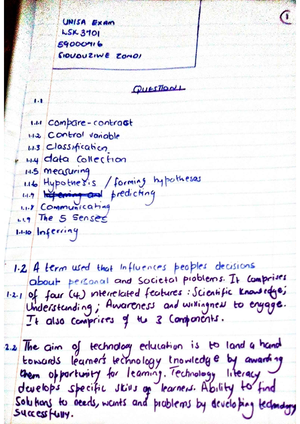 UNISA EXAM
LSK 3701
59000716
SIDUDUZIWE ZONDI
1
QUESTION 1
1.1
1.1.1 Compare-contrast
1.1.2 Control variable
1.1.3 Classification
1.1.4 data collection
1.1.5 measuring
1.1.6 Hypothesis / forming hypotheses
1.1.7 predicting
1.1.8 Communicating
1.1.9 The 5 Senses
1.1.10 Inferring
1.2 A term used that influences peoples decisions
about personal and societal problems. It comprises
1.2.1 of four (4) interrelated features: Scientific knowledge;
Understanding; Awareness and willingness to engage.
It also comprises of the 3 components.
2.2 The aim of technology education is to land a hand
towards learners technology knowledge by awarding
them opportunity for learning. Technology literacy
develops specific skills learners. Ability to find
solutions to needs, wants and problems by developing technology
successfully.